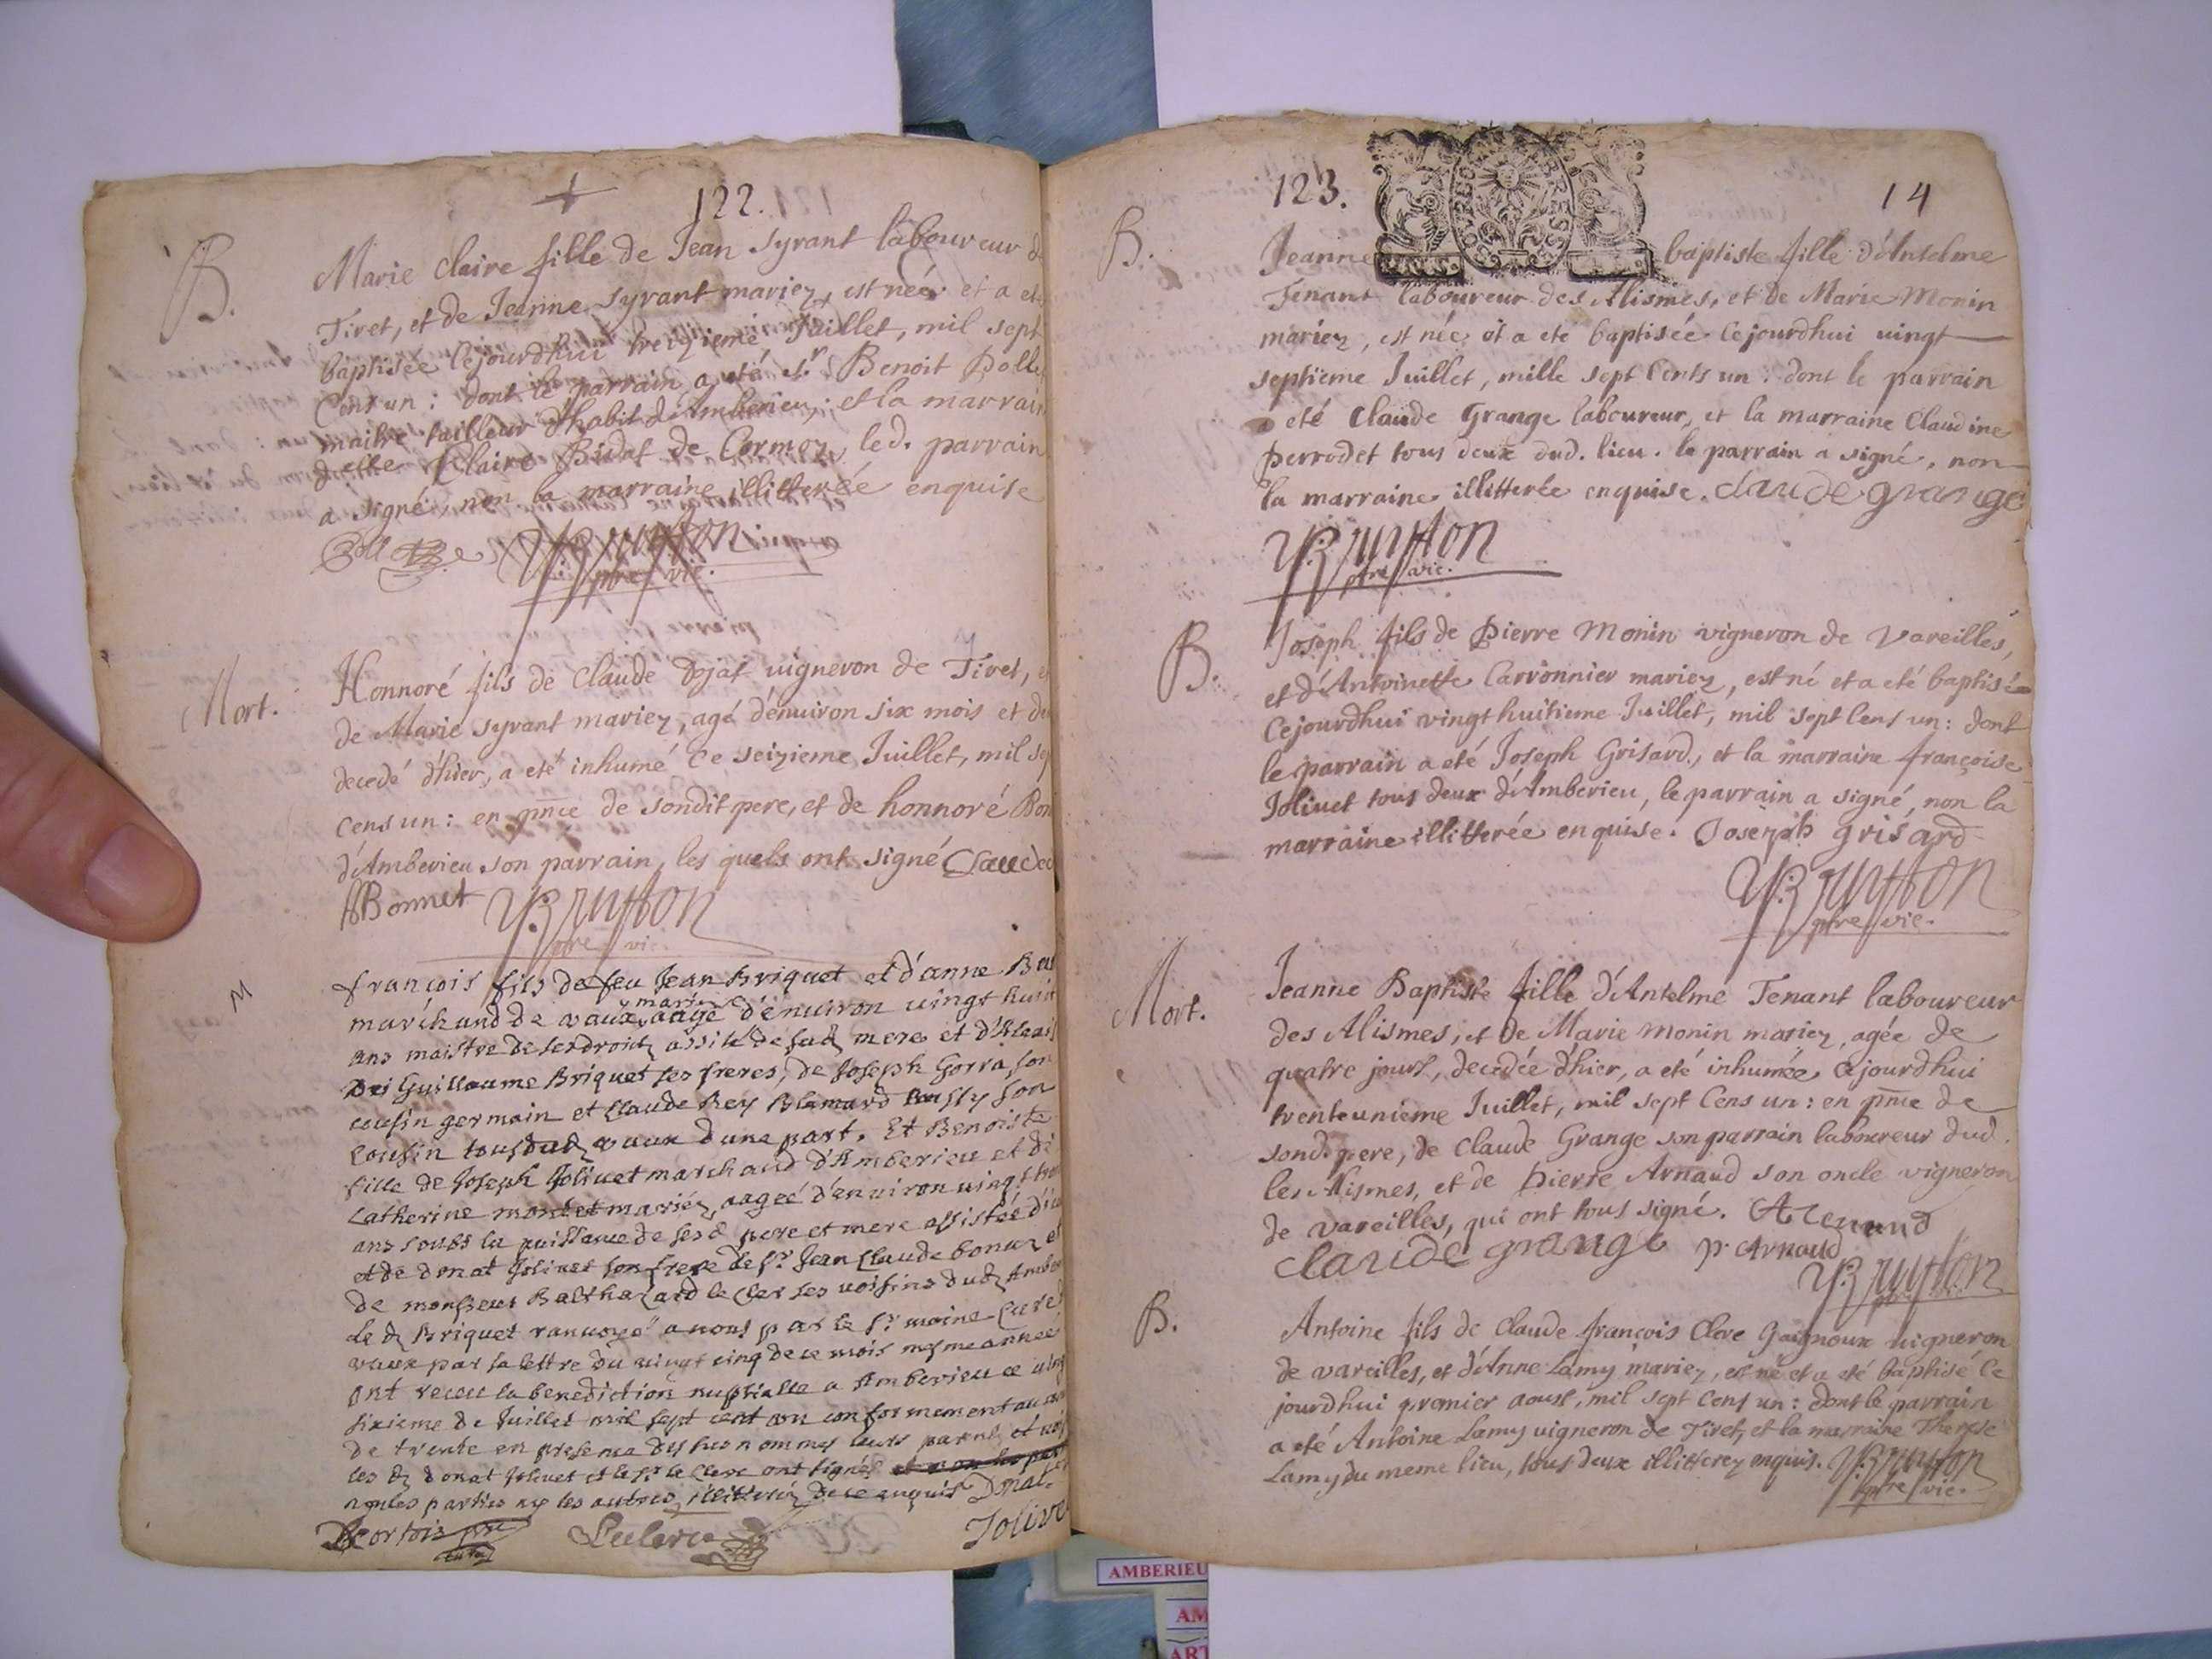 122.
B.
Marie Claire fille de Jean Syrant laboureur de
Tiret, et de Jeanne Syrant mariez, est née et a eté
baptisée Cejourdhui treizieme Juillet, mil sept
Cens un : dont le parrain a eté Sr. Benoit
maitre tailleur d'habit d'Amberieu; et la marraine
Claire Bidat de Cormoz, led. parrain
a signé, non la marraine illitterée enquise
ptre vic.
Mort.
Honnoré fils de Claude Dejat vigneron de Tiret, et
de Marie Syrant mariez, agé d'enuiron six mois et
decedé d'hier, a eté inhumé Ce seizieme Juillet, mil sep
Cens un : en pnce de sondit pere, et de honnoré Bon
d'Amberieu son parrain, les quels ont signé Claude
HBonnet
ptre vic.
M
françois fils de feu Jean Briquet et d'anne
marchand de vaux, aagé d'enuiron uingt huit
mariez
ans maistre de ses droitz assisté de sad mere et
Guillaume Briquet ses freres, de Joseph Gorra son
cousin germain et Claude Rey son
cousin tous dudz vaux dune part. Et Benoiste
fille de Joseph Joliuet marchand d'Amberieu et de
Catherine montet mariez, aageé d'enuiron uingt
ans soubs la puissance de sesd pere et mere assisteé
et de donat Joliuet son frere de sr. Jean Claude bonnz et
de monsieur Balthazard le Clerc ses uoisins dudz Amber
le dz Briquet ranuoyé a nous par le sr moine Curé
vaux par sa lettre du uingt cinq de ce mois mesme anneé
ont receu la benediction nuptialle a Amberieu ce uingt
sixieme de Juillet mil sept cent un conformement au con
de trente en presence des susnommes leurs parentz et
les dz donat Joliuet et le sr le Clerc ont signés
non les parties ny les autres illitterez de ce enquis Donat
Jolivet
Leclerc
123.
14
B.
Jeanne baptiste fille d'Antelme
Tenant laboureur des Alismes, et de Marie Monin
mariez, est née et a eté baptisée Cejourdhui uingt
septieme Juillet, mille sept Cents un : dont le parrain
a eté Claude Grange laboureur, et la marraine Claudine
Perrodet tous deux dud. lieu. le parrain a signé, non
la marraine illitterée enquise. claude grange
ptre vic.
B.
Joseph fils de Pierre Monin vigneron de Vareilles,
et d'Antoinette Carronnier mariez, est né et a eté baptisé
Cejourdhui vingt huitieme Juillet, mil sept Cens un : dont
le parrain a eté Joseph Grisard, et la marraine françoise
Joliuet tous deux d'Amberieu, le parrain a signé, non la
marraine illitterée enquise. Joseph grisard
ptre vic.
Mort.
Jeanne Baptiste fille d'Antelme Tenant laboureur
des Alismes, et de Marie Monin mariez, agée de
quatre jours, decedée d'hier, a eté inhumée Cejourdhui
trenteunieme Juillet, mil sept Cens un : en pnce de
sond. pere, de Claude Grange son parrain laboureur dud.
les Alismes, et de Pierre Arnaud son oncle vigneron
de vareilles, qui ont tous signé. A Tenand
claude grange P. Arnaud
B.
Antoine fils de Claude françois Clere Gaignoux uigneron
de vareilles, et d'Anne Lamy mariez, est né et a eté baptisé Ce
jourdhui premier aoust, mil sept Cens un : dont le parrain
a eté Antoine Lamy uigneron de Tiret, et la marraine Therese
Lamy du meme lieu, tous deux illitterez enquis.
ptre vic.
AMBERIEU
AM
ART